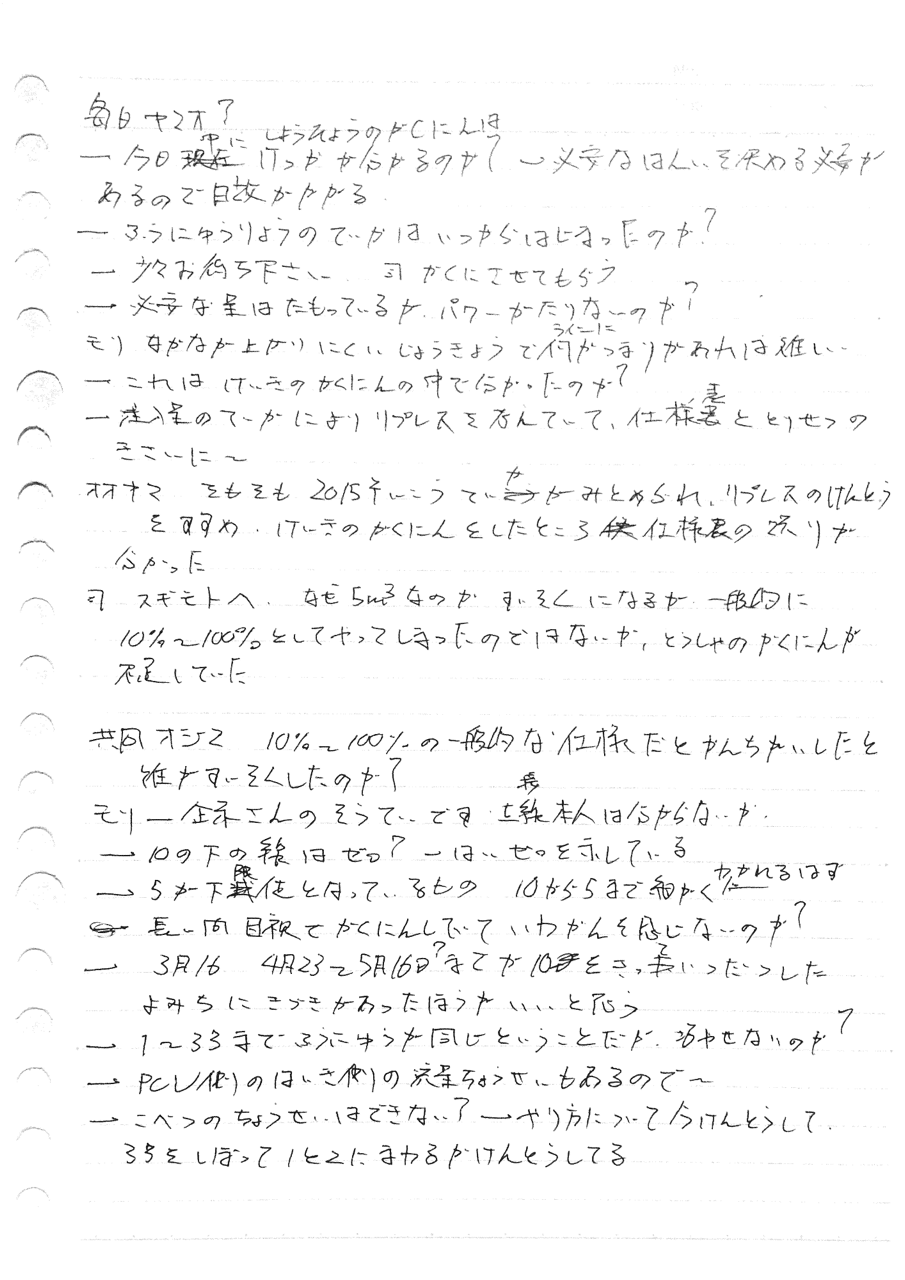 毎日 ヤマオ?
中に しょうそうのかくにんは
― 今日 けっかが分かるのか? ― 必要なはんいを決める必要が
あるので 日数がかかる
― ふうにゅうりょうのていかは いつからはじまったのか?
― 少々お待ち下さい 司 かくにさせてもらう
― 必要な量はたもっているが、パワーがたりないのか?
モリ なかなか上がりにくいじょうきょうで何かつまりがあれば難しい
― これは けいきのかくにんの中で分かったのか?
― 注入量のていかによりリプレスをすんでいて、仕様書ととりせつの
きさいに~
オオヤマ そもそも 2015年いこう ていかがみとめられ、リプレスのけんとう
をすすめ、けいきのかくにんをしたところ 仕様書の誤りが
分かった
司 スギモトへ、なぜ5㎥なのか すいそくになるが 一般的に
10%~100%としてやってしまったのではないか、とうしゃのかくにんが
不足していた
共同 オジマ 10%~100%の一般的な仕様だとかんちがいしたと
誰がすいそくしたのか?
モリ ― 企業さんのそうていです 本人は分からないか
― 10の下の線はゼロ? ― はい ゼロを示している
― 5が下限値となっているもの 10から5まで細かく わかれるはず
― 長い間 目視でかくにんしていて いわかんを感じないのか?
― 3月16 4月23~5月16日?までが10をきっていつだつした
よみちにきづきがあったほうがいいと思う
― 1~33までふうにゅうが同じということだが、増やせないのか?
― PCV側のはいき側の流量ちょうせいもあるので~
― こべつのちょうせいはできない? ― やり方について今けんとうして、
3号をしぼって1と2にまわるかけんとうしてる